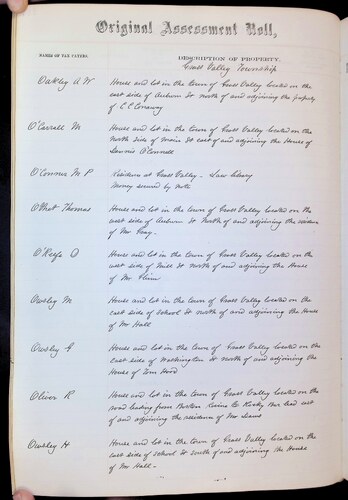 Original Assessment Roll,
NAMES OF TAX PAYERS. DESCRIPTION OF PROPERTY.
Grass Valley Township
Oakley A W House and lot in the town of Grass Valley located on the
east side of Auburn St north of and adjoining the property
of C C Conaway
O'Carroll M House and lot in the town of Grass Valley located on the
North side of main St east of and adjoining the House of
O'Connell
O'Connor M P Residence at Grass Valley - Law Library
Money secured by note
Thomas House and lot in the town of Grass Valley located on the
west side of Auburn St North of and adjoining the residence
of Mr Gray.
O'Keefe O House and lot in the town of Grass Valley located on the
west side of Mill St north of and adjoining the House
of Mr
Owsley M House and lot in the town of Grass Valley located on the
east side of school St north of and adjoining the House
of Mr Hall
Owsley G House and lot in the town of Grass Valley located on the
East side of Washington St north of and adjoining the
House of Tom Hood
Oliver R House and lot in the town of Grass Valley located on the
road leading from Boston Ravine to Rocky Bar Mill east
of and adjoining the residence of Mr
Owsley H House and lot in the town of Grass Valley located on the
east side of school St south of and adjoining the House
of Mr Hall -